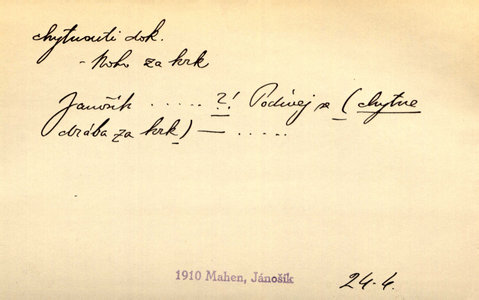 chytnouti dok.
- koho za krk
Janošík ..... ?! Podívej se (chytne
drába za krk) — .....
1910 Mahen, Jánošík
24.4.